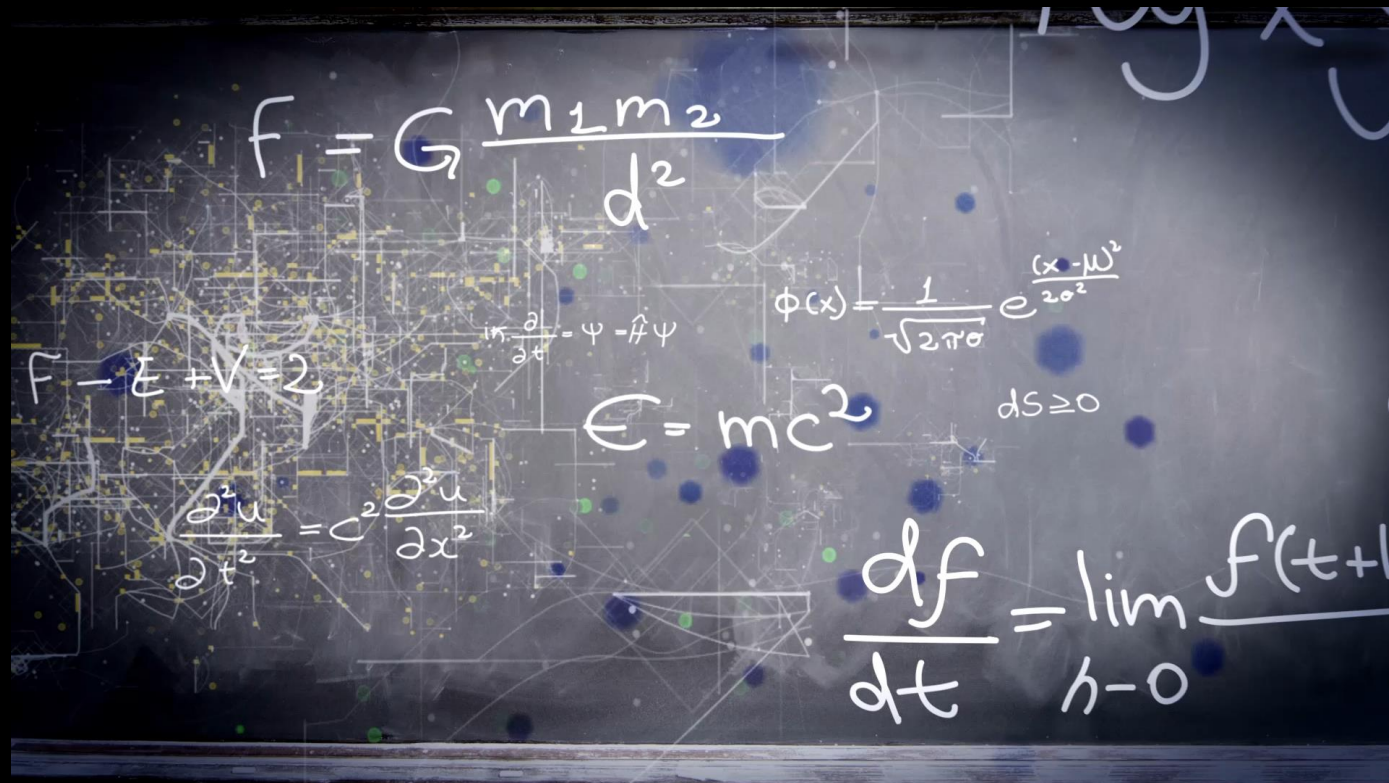 log x y
F = G m1m2/d²
Φ(x) = 1/√2πσ e (x-μ)²/2σ²
iℏ ∂/∂t = Ψ = ĤΨ
F - E + V = 2
E = mc²
dS ≥ 0
∂²u/∂t² = c² ∂²u/∂x²
df/dt = lim h-0 f(t+